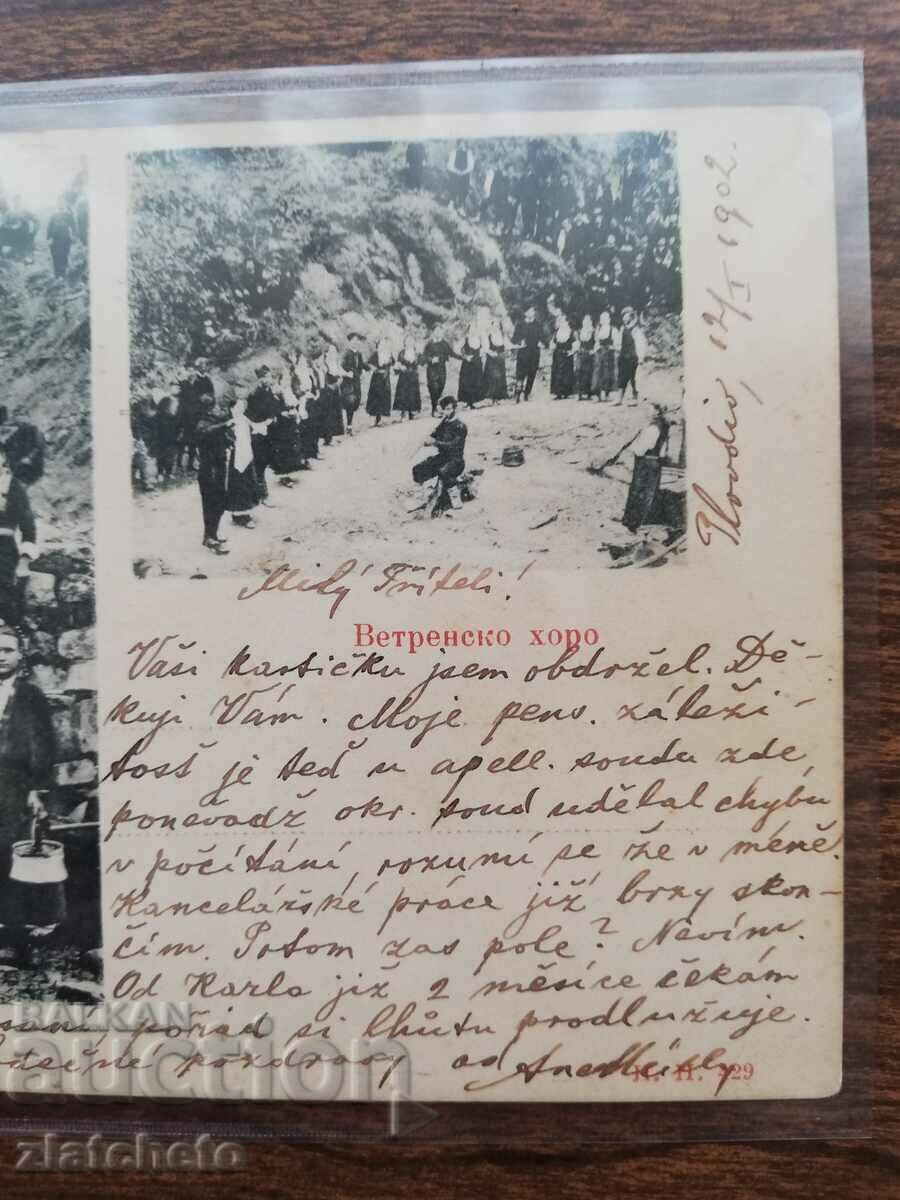 Plovdiv, 12/X 1902.
Milý Příteli!
Ветренско хоро
Vaši kartičku jsem obdržel. Dě-
kuji Vám. Moje pens. záleži-
tosť je teď u apell. soudu zde,
poněvadž okr. soud udělal chybu
v počítání, rozumí se že v méně.
Kancelářské práce již brzy skon-
čím. Potom zas pole? Nevím.
Od Karla již 2 měsíce čekám
psaní, pořád si lhůtu prodlužuje.
pozdravy
429
BALKAN
auction
zlatcheto